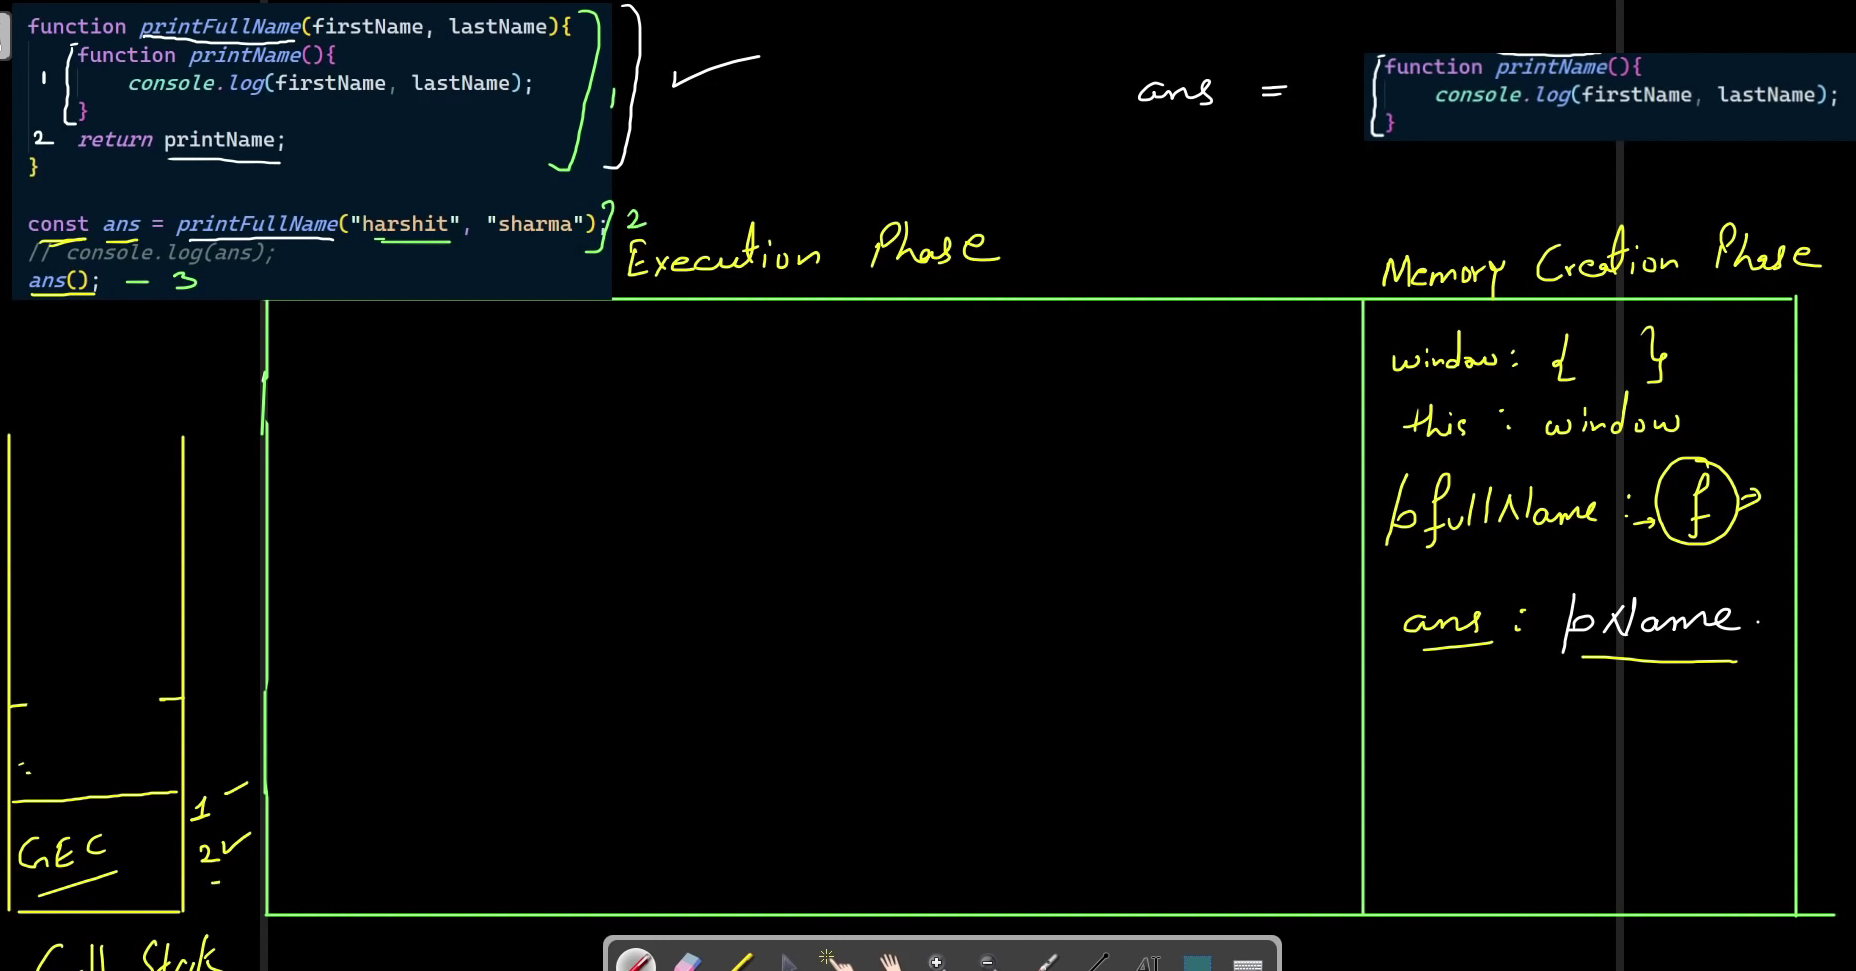 function printFullName(firstName, lastName){
1 function printName(){
console.log(firstName, lastName);
}
2 return printName;
}
const ans = printFullName("harshit", "sharma"); 2
// console.log(ans);
ans(); — 3
1
ans =
function printName(){
console.log(firstName, lastName);
}
Execution Phase
Memory Creation Phase
window : { }
this : window
pfullName : f
ans : pName .
1
2
GEC
Call Stack
AI